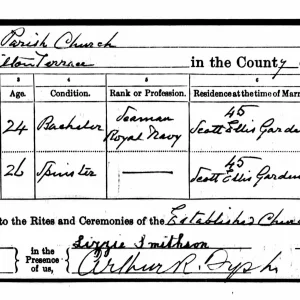 Parish Church
ilton Terrace in the County
3 4 5 6
Age. Condition. Rank or Profession. Residence at the time of Marri
24 Bachelor Seaman Royal Navy 45 Scott Ellis Garden
26 Spinster 45 Scott Ellis Garden
to the Rites and Ceremonies of the Established Church
in the Presence of us, Lizzie Smithson
Arthur R.